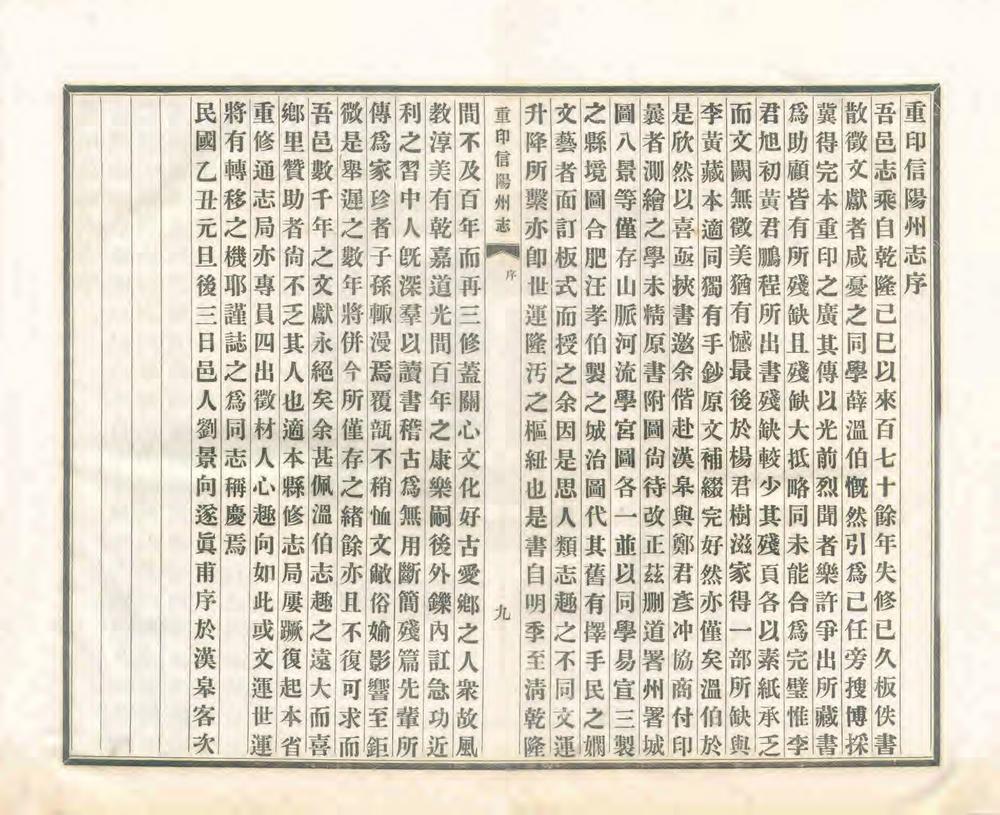 重印信陽州志序
吾邑志乘自乾隆己巳以來百七十餘年失修已久板佚書
散徵文獻者咸憂之同學薛溫伯慨然引爲己任旁搜博採
冀得完本重印之廣其傳以光前烈聞者樂許爭出所藏書
爲助顧皆有所殘缺且殘缺大抵略同未能合爲完璧惟李
君旭初黃君鵬程所出書殘缺較少其殘頁各以素紙承之
而文闕無徵美猶有憾最後於楊君樹滋家得一部所缺與
李黃藏本適同獨有手鈔原文補綴完好然亦僅矣溫伯於
是欣然以喜亟挾書邀余偕赴漢皋與鄭君彥冲協商付印
曩者測繪之學未精原書附圖尙待改正茲删道署州署城
圖八景等僅存山脈河流學宮圖各一並以同學易宣三製
之縣境圖合肥汪孝伯製之城治圖代其舊有擇手民之嫻
文藝者面訂板式而授之余因是思人類志趣之不同文運
升降所繫亦卽世運隆汚之樞紐也是書自明季至淸乾隆
重印信陽州志 序 九
間不及百年而再三修蓋關心文化好古愛鄉之人衆故風
教淳美有乾嘉道光間百年之康樂嗣後外鑠內訌急功近
利之習中人旣深羣以讀書稽古爲無用斷簡殘篇先輩所
傳爲家珍者子孫輒漫焉覆瓿不稍恤文敝俗媮影響至鉅
微是舉遲之數年將併今所僅存之緖餘亦且不復可求而
吾邑數千年之文獻永絕矣余甚佩溫伯志趣之遠大而喜
鄉里贊助者尙不乏其人也適本縣修志局屢蹶復起本省
重修通志局亦專員四出徵材人心趣向如此或文運世運
將有轉移之機耶謹誌之爲同志稱慶焉
民國乙丑元旦後三日邑人劉景向遂眞甫序於漢皋客次